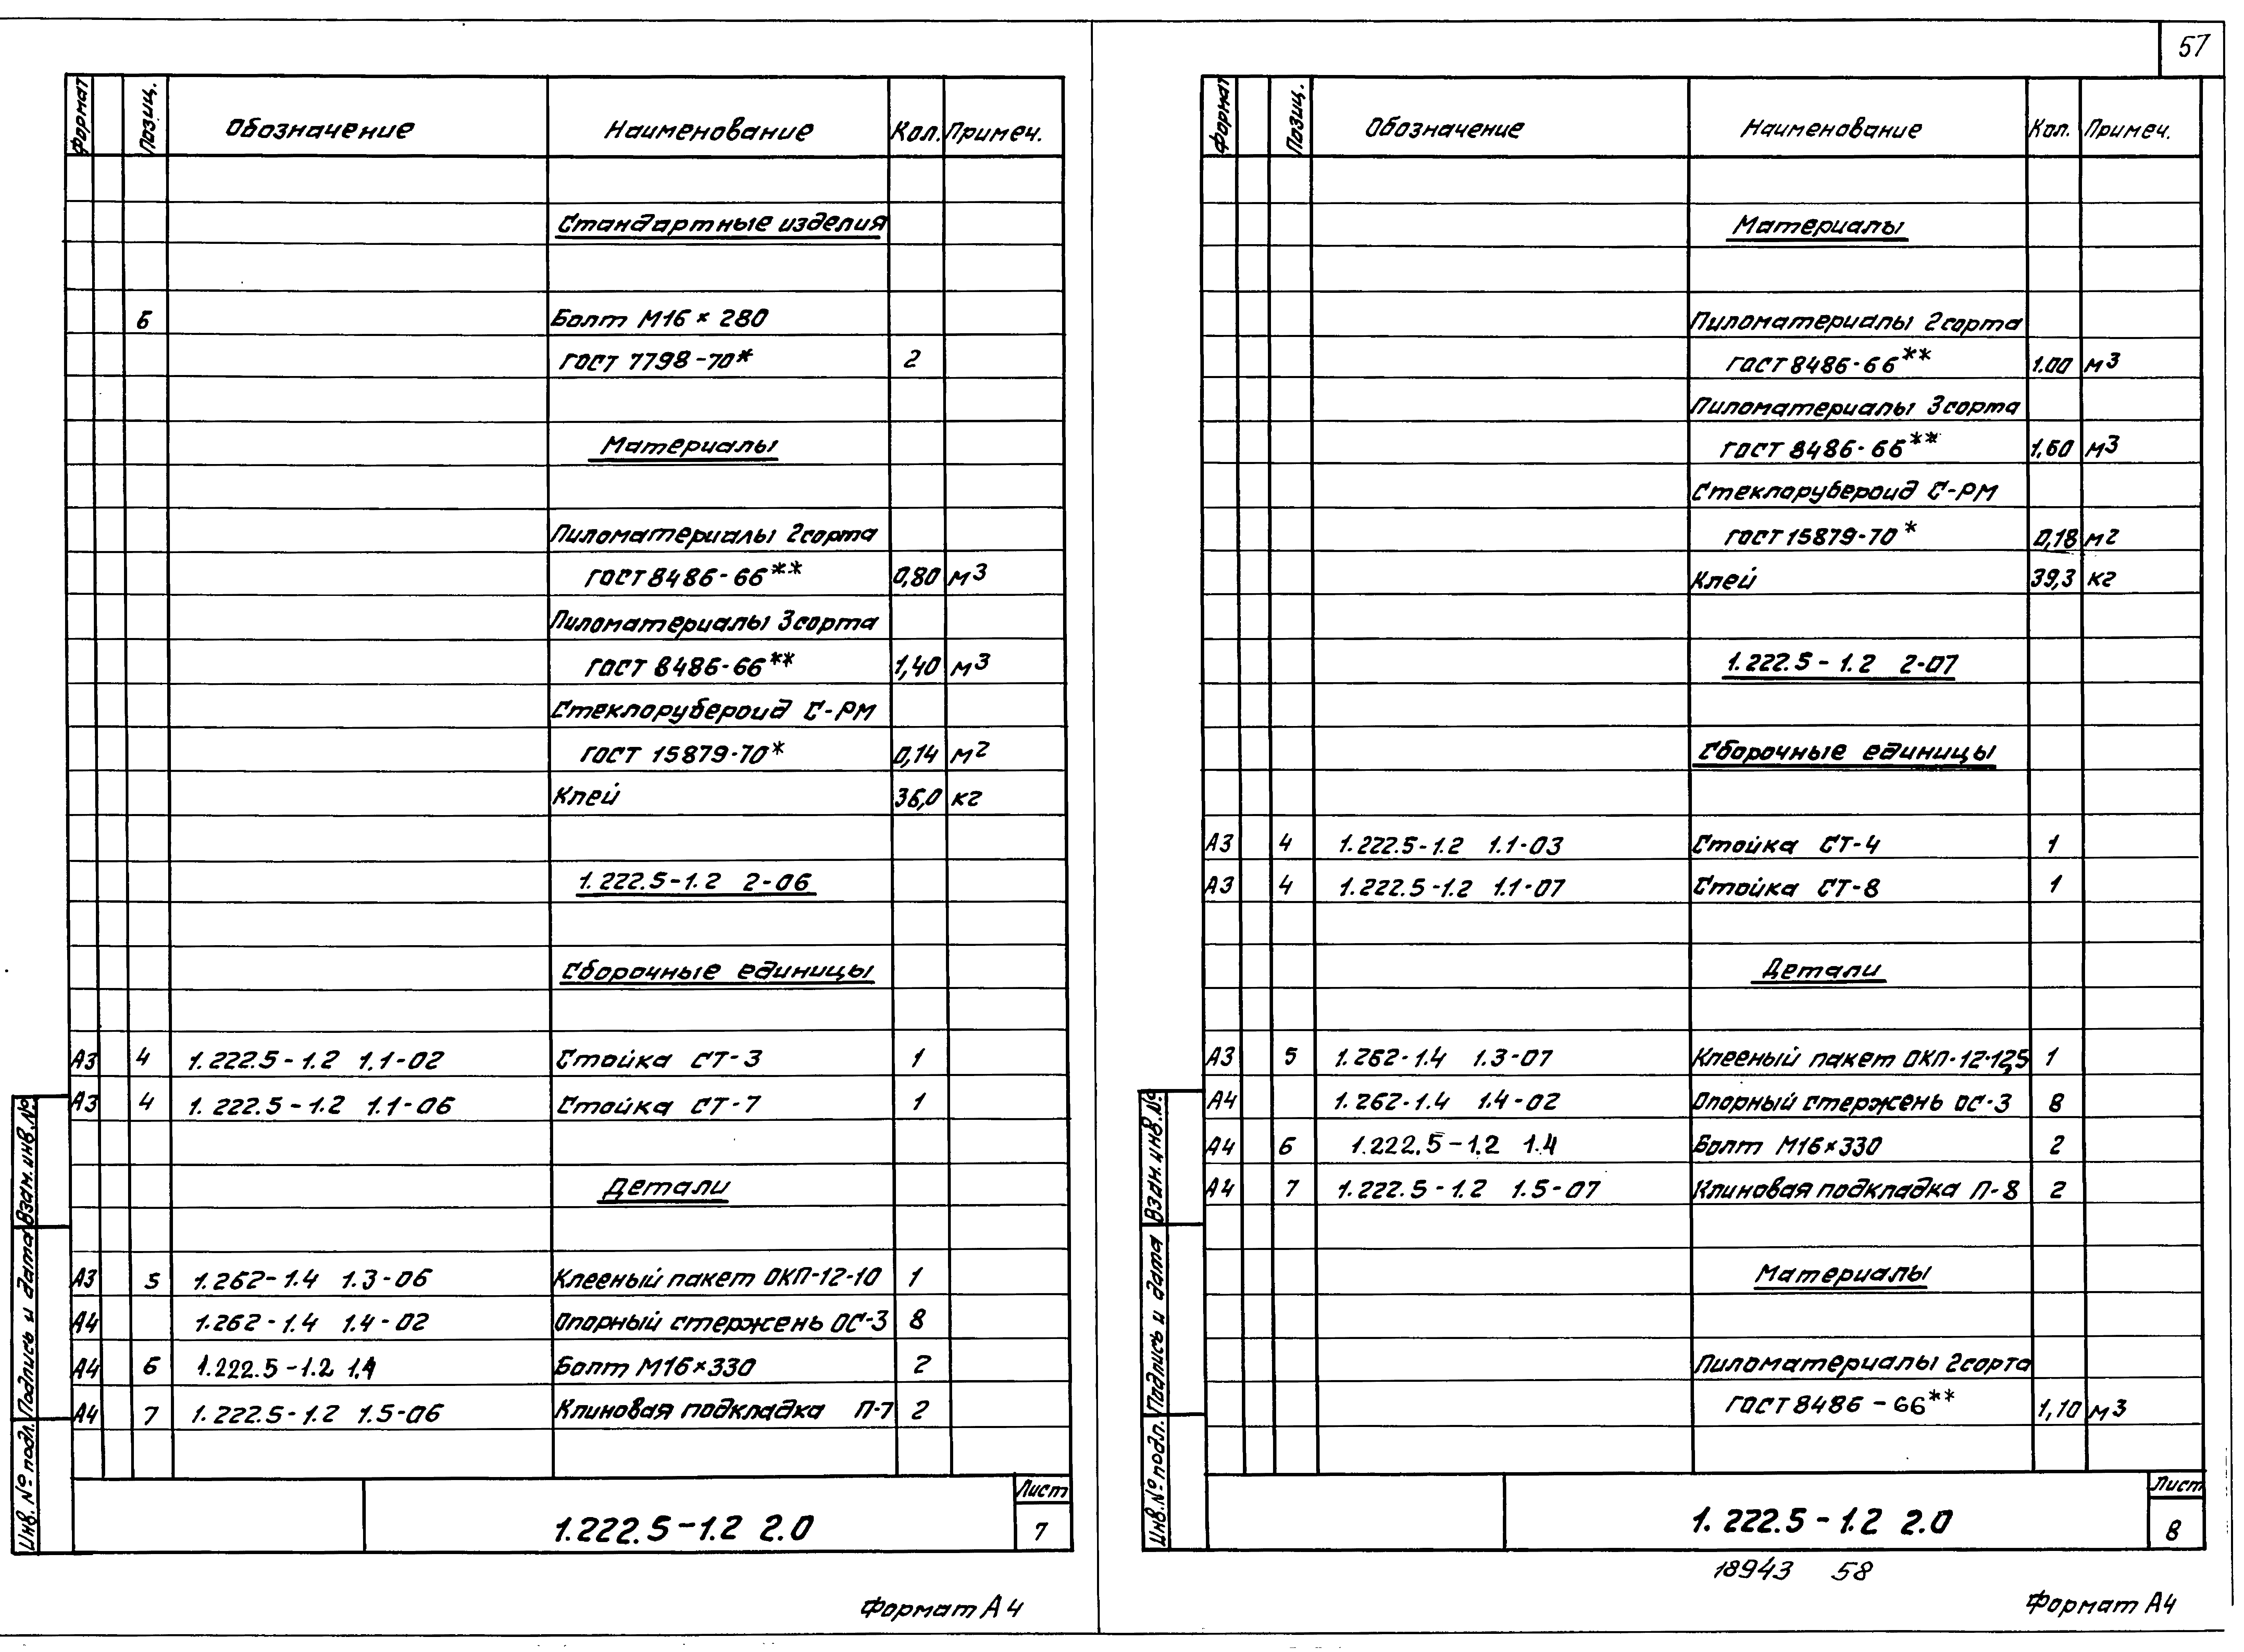 57
Формат Позиц. Обозначение Наименование Кол. Примеч.
Стандартные изделия
6 Болт М16 × 280
ГОСТ 7798-70* 2
Материалы
Пиломатериалы 2 сорта
ГОСТ 8486-66** 0,80 м3
Пиломатериалы 3 сорта
ГОСТ 8486-66** 1,40 м3
Стеклорубероид С-РМ
ГОСТ 15879-70* 0,14 м2
Клей 36,0 кг
1.222.5-1.2 2-06
Сборочные единицы
А3 4 1.222.5-1.2 1.1-02 Стойка СТ-3 1
А3 4 1.222.5-1.2 1.1-06 Стойка СТ-7 1
Детали
А3 5 1.262-1.4 1.3-06 Клееный пакет ОКП-12-10 1
А4 1.262-1.4 1.4-02 Опорный стержень ОС-3 8
А4 6 1.222.5-1.2 1.4 Болт М16×330 2
А4 7 1.222.5-1.2 1.5-06 Клиновая подкладка П-7 2
Инв. № подл. Подпись и дата Взам. инв. №
1.222.5-1.2 2.0
Лист
7
Формат А4
Формат Позиц. Обозначение Наименование Кол. Примеч.
Материалы
Пиломатериалы 2 сорта
ГОСТ 8486-66** 1.00 м3
Пиломатериалы 3 сорта
ГОСТ 8486-66** 1,60 м3
Стеклорубероид С-РМ
ГОСТ 15879-70* 0,18 м2
Клей 39,3 кг
1.222.5-1.2 2-07
Сборочные единицы
А3 4 1.222.5-1.2 1.1-03 Стойка СТ-4 1
А3 4 1.222.5-1.2 1.1-07 Стойка СТ-8 1
Детали
А3 5 1.262-1.4 1.3-07 Клееный пакет ОКП-12-12,5 1
А4 1.262-1.4 1.4-02 Опорный стержень ОС-3 8
А4 6 1.222.5-1.2 1.4 Болт М16×330 2
А4 7 1.222.5-1.2 1.5-07 Клиновая подкладка П-8 2
Материалы
Пиломатериалы 2 сорта
ГОСТ 8486-66** 1,10 м3
Инв. № подл. Подпись и дата Взам. инв. №
1.222.5-1.2 2.0
Лист
8
18943 58
Формат А4